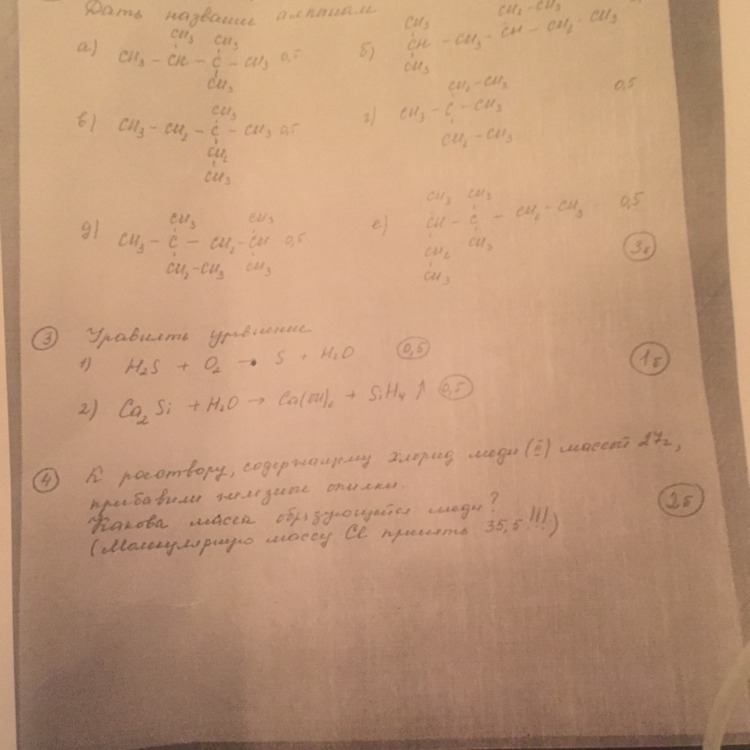 Дать названия алканам
CH3 CH3 CH3 CH2-CH3
а) CH3 - CH - C - CH3 0,5 б) CH - CH2 - CH - CH2 - CH3
CH3 CH3
CH3 CH2-CH3 0,5
в) CH3 - CH2 - C - CH3 0,5 г) CH3 - C - CH3
CH2 CH2 - CH3
CH3
CH3 CH3 CH3 CH3
д) CH3 - C - CH2 - CH 0,5 е) CH - C - CH2 - CH3 0,5
CH2-CH3 CH3 CH2 CH3
CH3 3б
3 Уравнять уравнение
1) H2S + O2 → S + H2O 0,5 1б
2) Ca2Si + H2O → Ca(OH)2 + SiH4 ↑ 0,5
4 К раствору, содержащему хлорид меди (II) массой 27г,
прибавили железные опилки.
Какова масса образующейся меди? 2б
(Молекулярную массу Cl принять 35,5!!!)